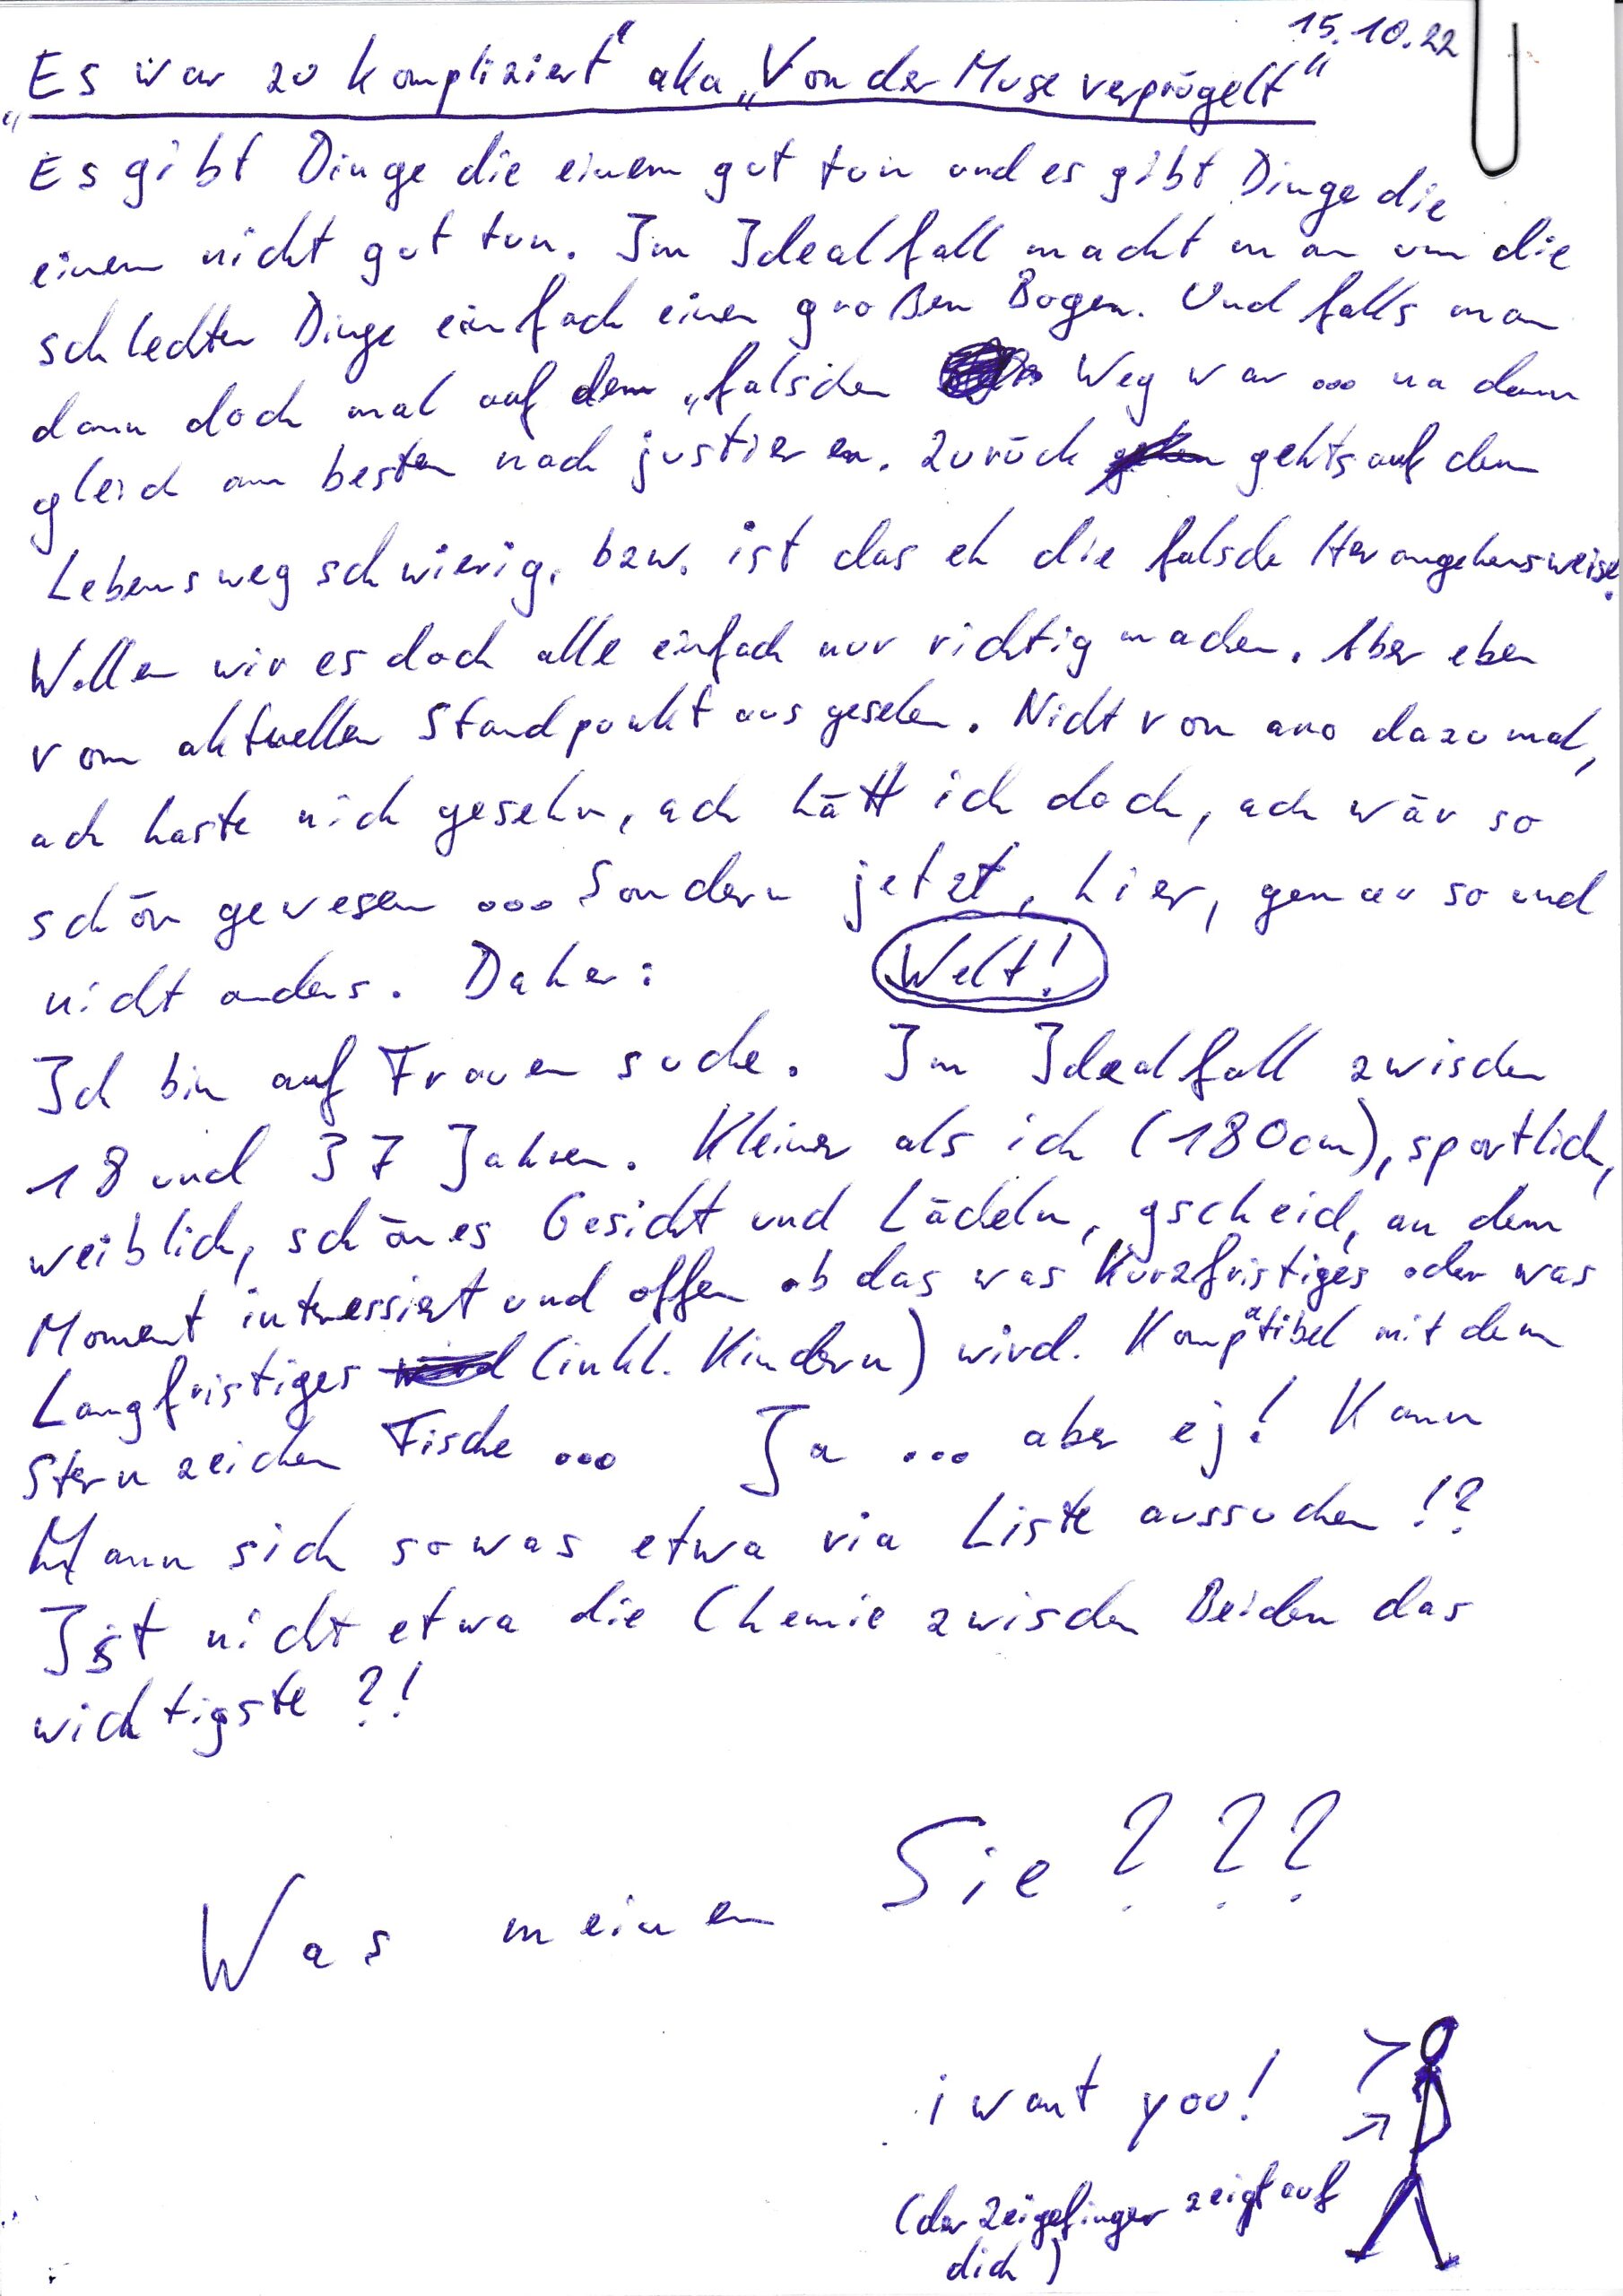 15.10.22
„Es war zu kompliziert" aka „Von der Muse verprügelt"
Es gibt Dinge die einem gut tun und es gibt Dinge die
einem nicht gut tun. Im Idealfall macht man um die
schlechten Dinge einfach einen großen Bogen. Und falls man
dann doch mal auf dem „falschen Weg war ... na dann
gleich am besten nach justieren. Zurück gehts auf dem
Lebensweg schwierig. bzw. ist das eh die falsche Herangehensweise.
Wollen wir es doch alle einfach nur richtig machen. Aber eben
vom aktuellen Standpunkt aus gesehen. Nicht von ano dazumal,
ach haste nich gesehn, ach hätt ich doch, ach wär so
schön gewesen ... Sondern jetzt, hier, genau so und
nicht anders. Daher: Welt!
Ich bin auf Frauensuche. Im Idealfall zwischen
18 und 37 Jahren. Kleiner als ich (180cm), sportlich,
weiblich, schönes Gesicht und Lächeln, gscheid, an dem
Moment interessiert und offen ob das was Kurzfristiges oder was
Langfristiges (inkl. Kindern) wird. Kompatibel mit dem
Sternzeichen Fische ... Ja ... aber ej! Kann
Mann sich sowas etwa via Liste aussuchen!?
Ist nicht etwa die Chemie zwischen Beiden das
wichtigste?!
Was meinen Sie???
i want you!
(der Zeigefinger zeigt auf
dich)